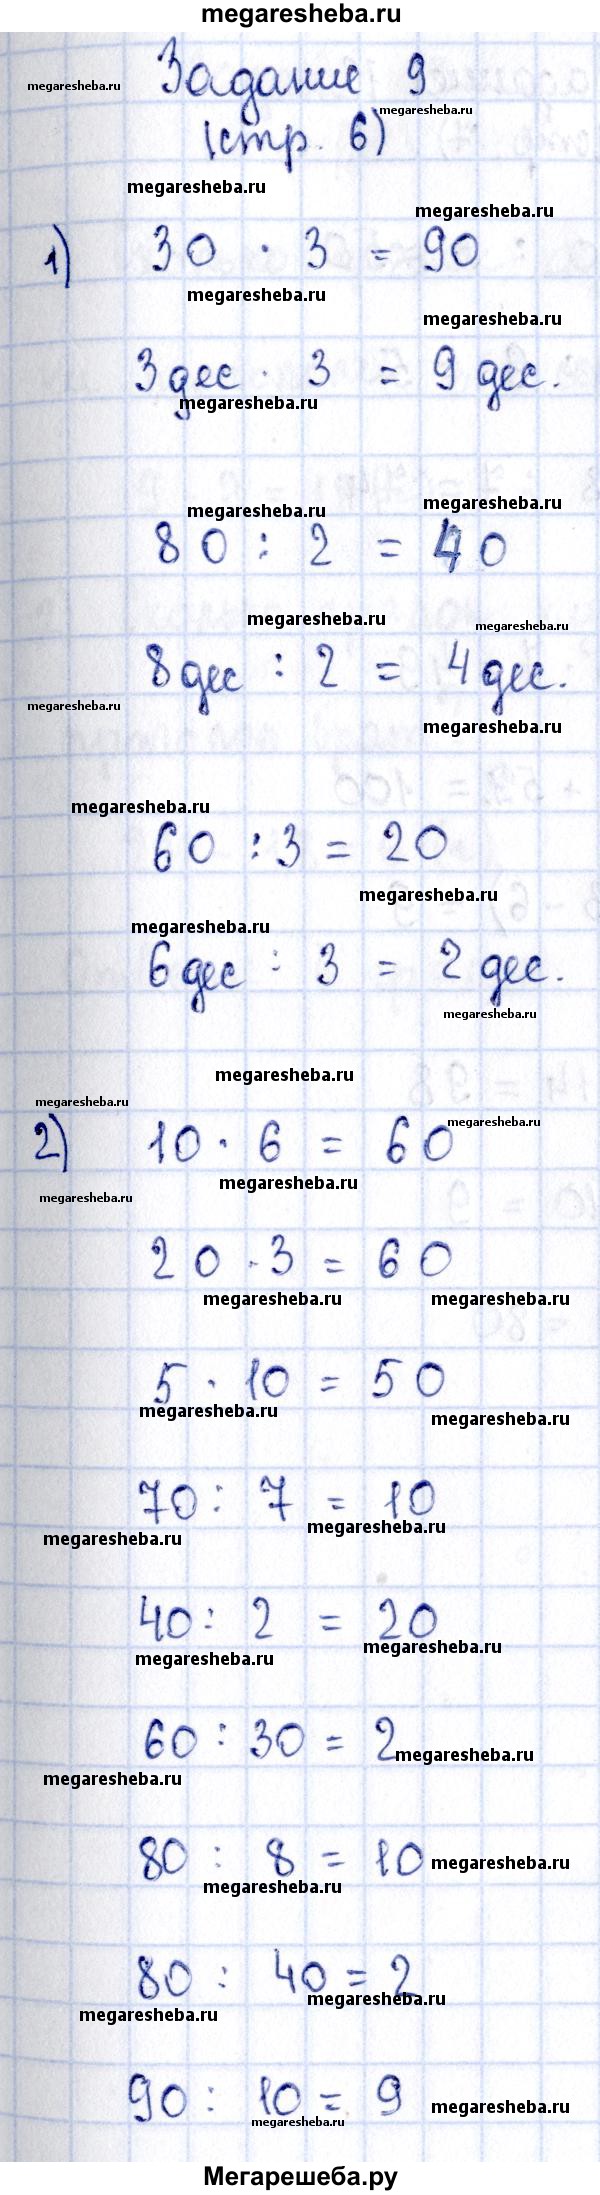 megaresheba.ru
Задание 9
(стр. 6)
1) 30 · 3 = 90
3 дес · 3 = 9 дес.
80 : 2 = 40
8 дес : 2 = 4 дес.
60 : 3 = 20
6 дес : 3 = 2 дес.
2) 10 · 6 = 60
20 · 3 = 60
5 · 10 = 50
70 : 7 = 10
40 : 2 = 20
60 : 30 = 2
80 : 8 = 10
80 : 40 = 2
90 : 10 = 9
Мегарешеба.ру